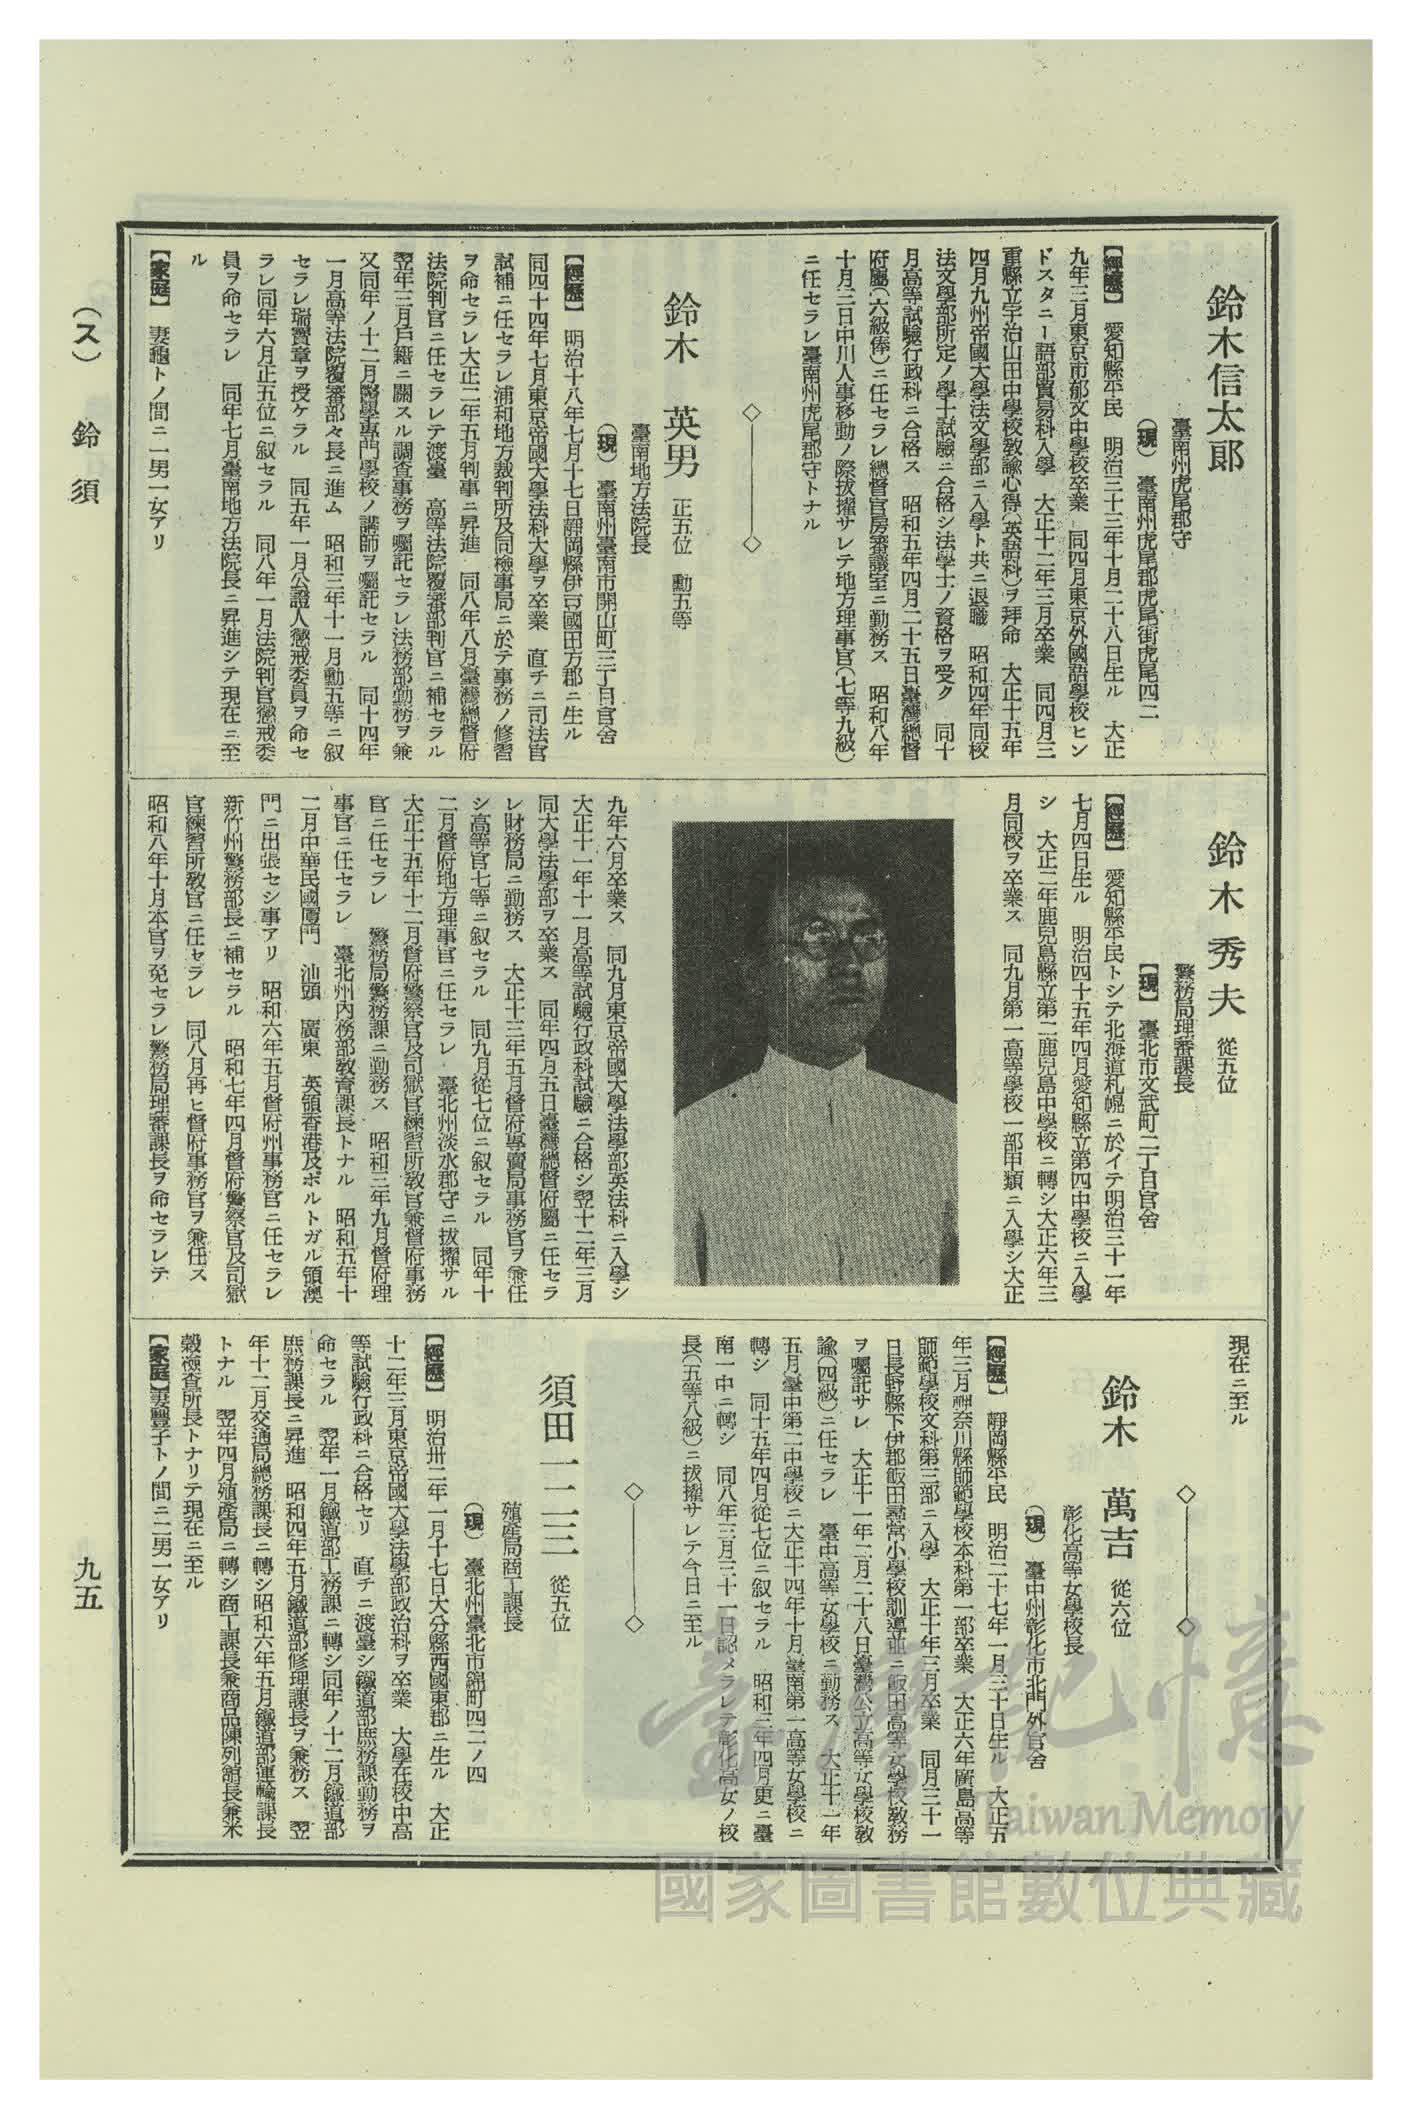 鈴木信太郎
臺南州虎尾郡守
(現) 臺南州虎尾郡虎尾街虎尾四二
【經歷】 愛知縣平民 明治三十三年十月二十八日生ル 大正
九年三月東京市郁文中學校卒業 同四月東京外國語學校ヒン
ドスタニー語部貿易科入學 大正十二年三月卒業 同四月三
重縣立宇治山田中學校敎諭心得(英語科)ヲ拜命 大正十五年
四月九州帝國大學法文學部ニ入學ト共ニ退職 昭和四年同校
法文學部所定ノ學士試驗ニ合格シ法學士ノ資格ヲ受ク 同十
月高等試驗行政科ニ合格ス 昭和五年四月二十五日臺灣總督
府屬(六級俸)ニ任セラレ總督官房審議室ニ勤務ス 昭和八年
十月三日中川人事移動ノ際拔擢サレテ地方理事官(七等九級)
ニ任セラレ臺南州虎尾郡守トナル
鈴木 英男 正五位 勳五等
臺南地方法院長
(現) 臺南州臺南市開山町三丁目官舍
【經歷】 明治十八年七月十七日靜岡縣伊豆國田方郡ニ生ル
同四十四年七月東京帝國大學法科大學ヲ卒業 直チニ司法官
試補ニ任セラレ浦和地方裁判所及同檢事局ニ於テ事務ノ修習
ヲ命セラレ大正二年五月判事ニ昇進 同八年八月臺灣總督府
法院判官ニ任セラレテ渡臺 高等法院覆審部判官ニ補セラル
翌年三月戶籍ニ關スル調査事務ヲ囑託セラレ法務部勤務ヲ兼
又同年ノ十二月醫學專門學校ノ講師ヲ囑託セラル 同十四年
一月高等法院覆審部々長ニ進ム 昭和三年十一月勳五等ニ叙
セラレ瑞寶章ヲ授ケラル 同五年一月公證人懲戒委員ヲ命セ
ラレ同年六月正五位ニ叙セラル 同八年一月法院判官懲戒委
員ヲ命セラレ 同年七月臺南地方法院長ニ昇進シテ現在ニ至
ル
【家庭】 妻龜トノ間ニ一男一女アリ
鈴木秀夫 從五位
警務局理審課長
【現】 臺北市文武町二丁目官舍
【經歷】 愛知縣平民トシテ北海道札幌ニ於イテ明治三十一年
七月四日生ル 明治四十五年四月愛知縣立第四中學校ニ入學
シ 大正二年鹿兒島縣立第二鹿兒島中學校ニ轉シ大正六年三
月同校ヲ卒業ス 同九月第一高等學校一部甲類ニ入學シ大正
九年六月卒業ス 同九月東京帝國大學法學部英法科ニ入學シ
大正十一年十一月高等試驗行政科試驗ニ合格シ翌十二年三月
同大學法學部ヲ卒業ス 同年四月五日臺灣總督府屬ニ任セラ
レ財務局ニ勤務ス 大正十三年五月督府專賣局事務官ヲ兼任
シ高等官七等ニ叙セラル 同九月從七位ニ叙セラル 同年十
二月督府地方理事官ニ任セラレ 臺北州淡水郡守ニ拔擢サル
大正十五年十二月督府警察官及司獄官練習所敎官兼督府事務
官ニ任セラレ 警務局警務課ニ勤務ス 昭和三年九月督府理
事官ニ任セラレ 臺北州內務部敎育課長トナル 昭和五年十
二月中華民國廈門 汕頭 廣東 英領香港及ポルトガル領澳
門ニ出張セシ事アリ 昭和六年五月督府州事務官ニ任セラレ
新竹州警務部長ニ補セラル 昭和七年四月督府警察官及司獄
官練習所敎官ニ任セラレ 同八月再ヒ督府事務官ヲ兼任ス
昭和八年十月本官ヲ免セラレ警務局理審課長ヲ命セラレテ
現在ニ至ル
鈴木 萬吉 從六位
彰化高等女學校長
(現) 臺中州彰化市北門外官舍
【經歷】 靜岡縣平民 明治二十七年一月三十日生ル 大正五
年三月神奈川縣師範學校本科第一部卒業 大正六年廣島高等
師範學校文科第三部ニ入學 大正十年三月卒業 同月三十一
日長野縣下伊郡飯田尋常小學校訓導並ニ飯田高等女學校敎務
ヲ囑託サレ 大正十一年二月二十八日臺灣公立高等女學校敎
諭(四級)ニ任セラレ 臺中高等女學校ニ勤務ス 大正十一年
五月臺中第二中學校ニ大正十四年十月臺南第一高等女學校ニ
轉シ 同十五年四月從七位ニ叙セラル 昭和三年四月更ニ臺
南一中ニ轉シ 同八年三月三十一日認メラレテ彰化高女ノ校
長(五等八級)ニ拔擢サレテ今日ニ至ル
須田一二三 從五位
殖產局商工課長
(現) 臺北州臺北市錦町四二ノ四
【經歷】 明治卅二年一月十七日大分縣西國東郡ニ生ル 大正
十二年三月東京帝國大學法學部政治科ヲ卒業 大學在校中高
等試驗行政科ニ合格セリ 直チニ渡臺シ鐵道部庶務課勤務ヲ
命セラル 翌年一月鐵道部工務課ニ轉シ同年ノ十二月鐵道部
庶務課長ニ昇進 昭和四年五月鐵道部修理課長ヲ兼務ス 翌
年十二月交通局總務課長ニ轉シ昭和六年五月鐵道部運輸課長
トナル 翌年四月殖產局ニ轉シ商工課長兼商品陳列舘長兼米
穀檢查所長トナリテ現在ニ至ル
【家庭】妻豐子トノ間ニ二男一女アリ
(ス) 鈴 須
九五
臺灣記憶
Taiwan Memory
國家圖書館數位典藏